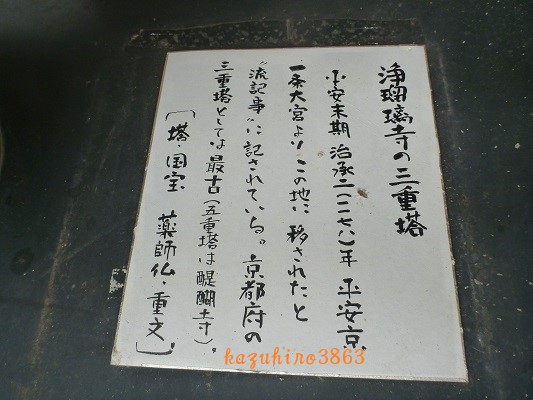 浄瑠璃寺の三重塔
平安末期 治承二(一一七八)年 平安京
一条大宮よりこの地に移されたと
“流記事”に記されている。京都府の
三重塔としては最古(五重塔は醍醐寺)。
〔塔・国宝 薬師仏・重文〕
kazuhiro3863